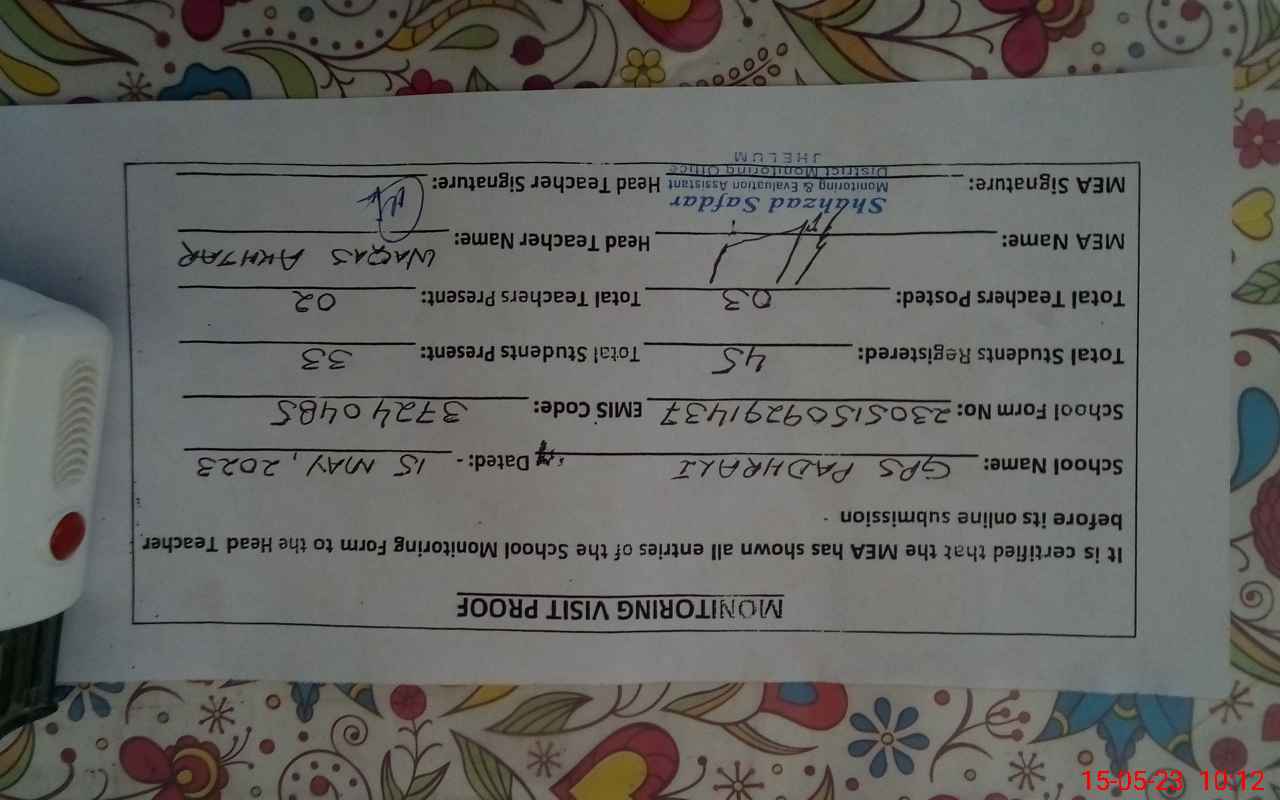 MONITORING VISIT PROOF
It is certified that the MEA has shown all entries of the School Monitoring Form to the Head Teacher
before its online submission
School Name: GPS PADHRALI Dated: - 15 MAY, 2023
School Form No: 23051509291437 EMIS Code: 37240485
Total Students Registered: 45 Total Students Present: 33
Total Teachers Posted: 03 Total Teachers Present: 02
MEA Name: Head Teacher Name: WAQAS AKHTAR
Shahzad Safdar
Monitoring & Evaluation Assistant
MEA Signature: Head Teacher Signature:
District Monitoring Office
JHELUM
15-05-23 10:12